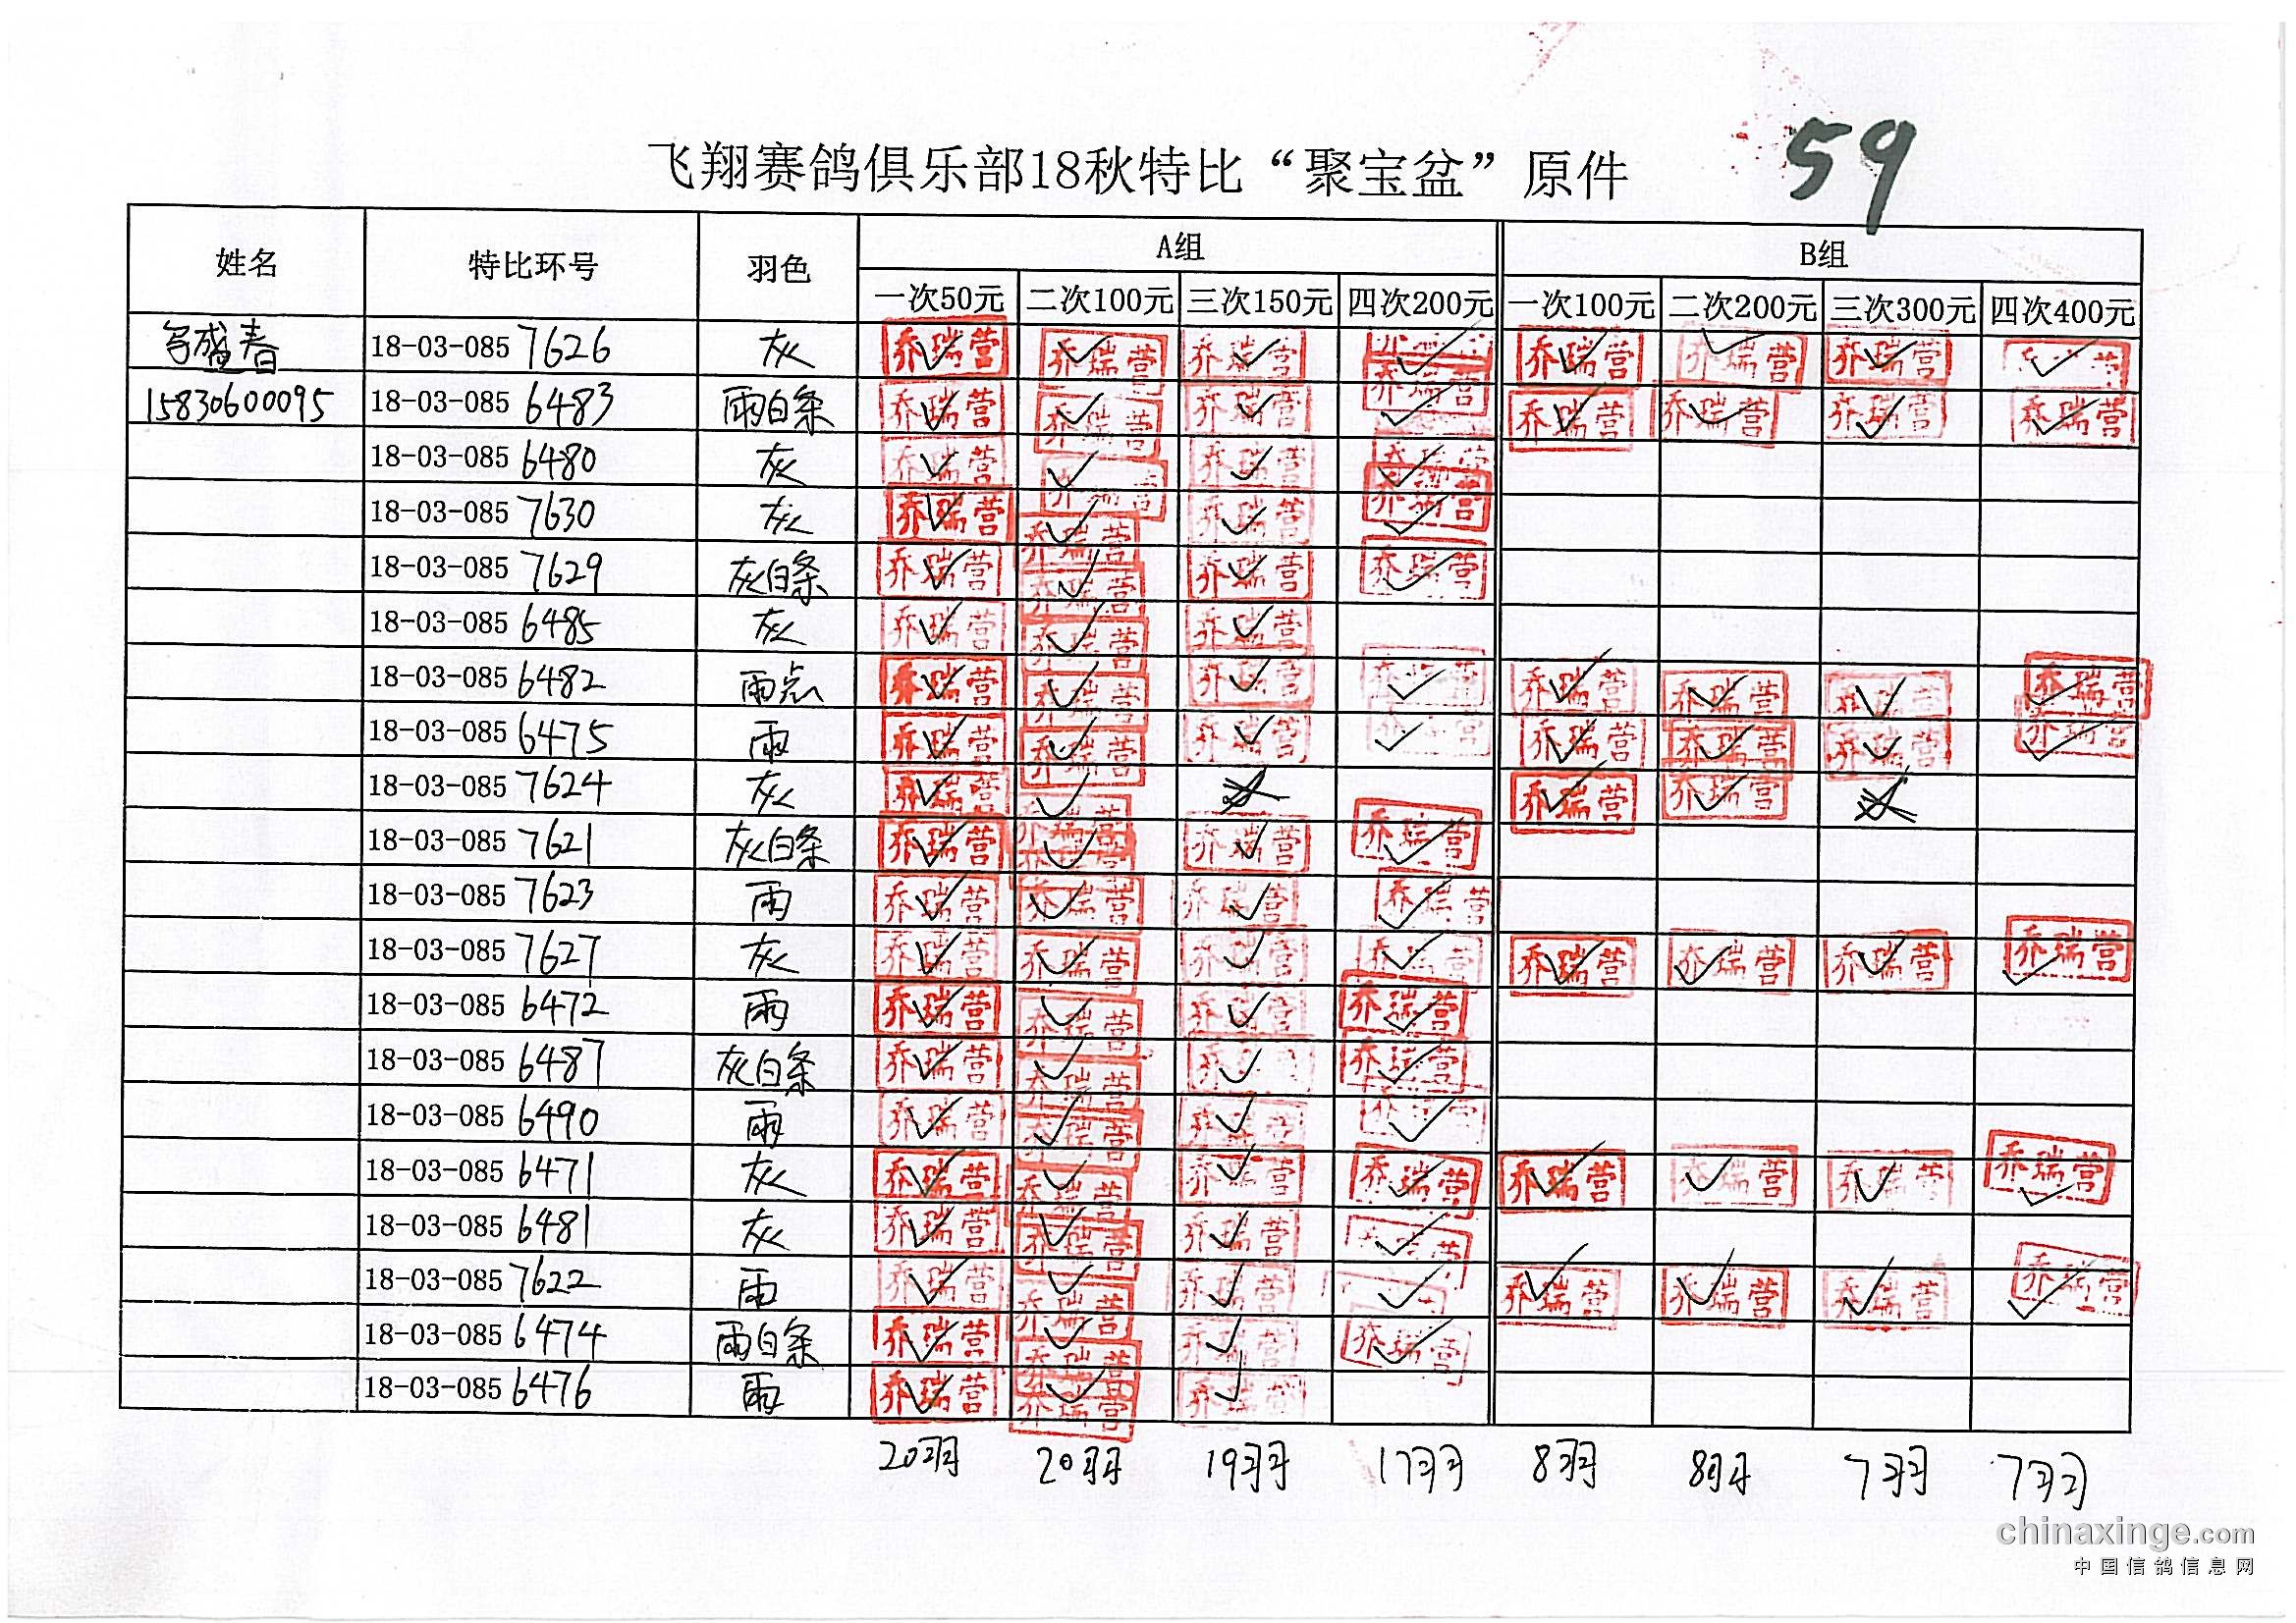 飞翔赛鸽俱乐部18秋特比“聚宝盆”原件 59
姓名 特比环号 羽色 A组 B组
一次50元 二次100元 三次150元 四次200元 一次100元 二次200元 三次300元 四次400元
盛春 18-03-085 7626 灰 乔瑞营 乔瑞营 乔瑞营 乔瑞营 乔瑞营 乔瑞营
15830600095 18-03-085 6483 雨白条 乔瑞营 乔瑞营 乔瑞营 乔瑞营 乔瑞营 乔瑞营 乔瑞营 乔瑞营
18-03-085 6480 灰 乔瑞营 乔瑞营 乔瑞营
18-03-085 7630 灰 乔瑞营 乔瑞营 乔瑞营 乔瑞营
18-03-085 7629 灰白条 乔瑞营 乔瑞营 乔瑞营 乔瑞营
18-03-085 6485 灰 乔瑞营 乔瑞营 乔瑞营
18-03-085 6482 雨点 乔瑞营 乔瑞营 乔瑞营 乔瑞营 乔瑞营 乔瑞营 乔瑞营 乔瑞营
18-03-085 6475 雨 乔瑞营 乔瑞营 乔瑞营 乔瑞营 乔瑞营 乔瑞营 乔瑞营 乔瑞营
18-03-085 7624 灰 乔瑞营 乔瑞营 乔瑞营 乔瑞营
18-03-085 7621 灰白条 乔瑞营 乔瑞营 乔瑞营 乔瑞营
18-03-085 7623 雨 乔瑞营 乔瑞营 乔瑞营 乔瑞营
18-03-085 7627 灰 乔瑞营 乔瑞营 乔瑞营 乔瑞营 乔瑞营 乔瑞营 乔瑞营 乔瑞营
18-03-085 6472 雨 乔瑞营 乔瑞营 乔瑞营 乔瑞营
18-03-085 6487 灰白条 乔瑞营 乔瑞营 乔瑞营 乔瑞营
18-03-085 6490 雨 乔瑞营 乔瑞营 乔瑞营 乔瑞营
18-03-085 6471 灰 乔瑞营 乔瑞营 乔瑞营 乔瑞营 乔瑞营 乔瑞营 乔瑞营 乔瑞营
18-03-085 6481 灰 乔瑞营 乔瑞营 乔瑞营
18-03-085 7622 雨 乔瑞营 乔瑞营 乔瑞营 乔瑞营 乔瑞营 乔瑞营 乔瑞营
18-03-085 6474 雨白条 乔瑞营 乔瑞营 乔瑞营 乔瑞营
18-03-085 6476 雨 乔瑞营 乔瑞营 乔瑞营
20羽 20羽 19羽 17羽 8羽 8羽 7羽 7羽
chinaxinge.com
中国信鸽信息网